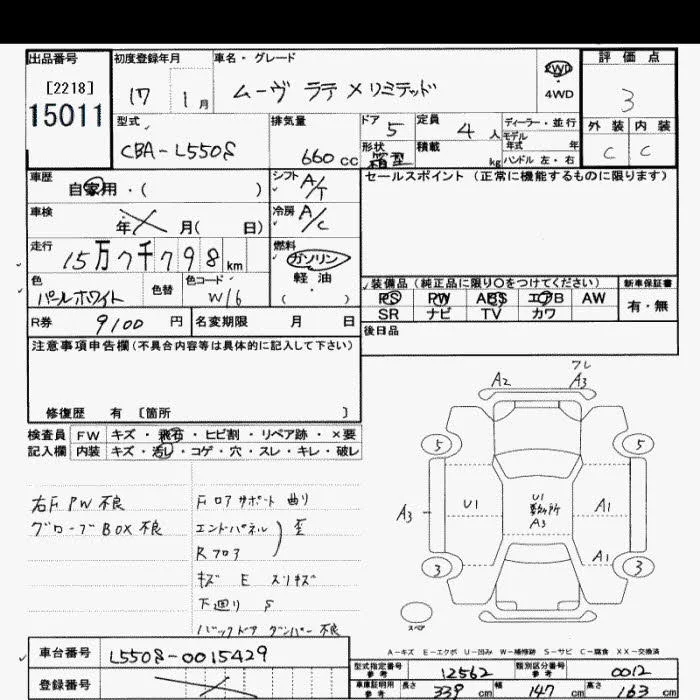 出品番号 初度登録年月 車名・グレード 2WD 評価点
[2218] 17 1月 ムーヴ ラテ Xリミテッド 4WD 3
15011 型式 排気量 ドア 5 定員 4人 ディーラー・並行 外装 内装
モデル年式 年
CBA-L550S 660cc 形状 箱型 積載 kg ハンドル 左・右 C C
車歴 シフト A/T セールスポイント (正常に機能するものに限ります)
自家用・( )
車検 年 月( 日) 冷房 A/C
走行 15万7千798km 燃料 ガソリン
軽油
( )
色 色替 色コード 装備品(純正品に限り○をつけてください) 新車保証書
パールホワイト W16 PS PW ABS エアB AW 有・無
SR ナビ TV カワ
R券 9100円 名変期限 月 日 後日品
注意事項申告欄(不具合内容等は具体的に記入して下さい)
修復歴 有 〔箇所 〕
フレ
A2 A3
検査員 FW キズ・飛石・ヒビ割・リペア跡・×要
記入欄 内装 キズ・汚レ・コゲ・穴・スレ・キレ・破レ
5 5
右F PW 不良 Fロアサポート 曲り
グローブBOX 不良 エンドパネル
Rフロア 歪
A3 U1 U1 A3 A1
A1
3 3
キズ E スリキズ
下廻り S
バックドア ダンパー 不良
スペア
A-キズ E-エクボ U-凹み W-補修跡 S-サビ C-腐食 XX-交換済
車台番号 L550S-0015429
型式指定番号 参考 12562 類別区分番号 参考 0012
登録番号
車庫証明用 参考 長さ 339 幅 147 高さ 163 cm